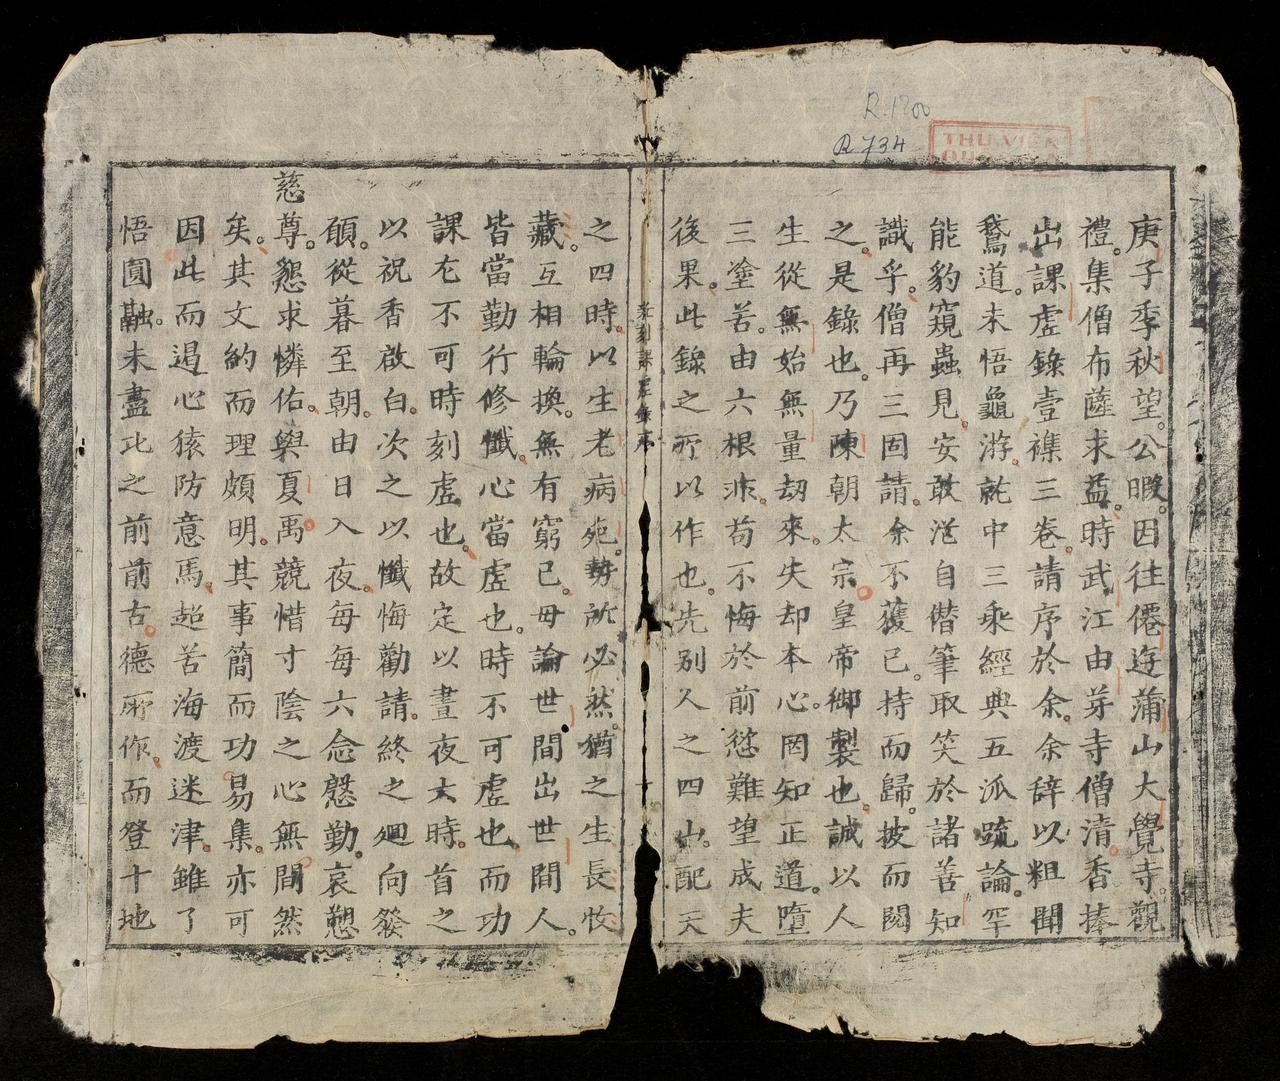 R.1700
R 734
THU VIEN
庚子季秋望。公暇。因往僊遊蒲山大覺寺。觀
禮。集僧布薩求益。時武江由芽寺僧清香捧
出課虛錄壹襍三卷。請序於余。余辞以粗聞
鵞道。未悟龜游。訰中三乘經典五派䟽論。罕
能豹窺蟲見。安敢泚自僣筆取笑於諸善知
識乎。僧再三固請。余不獲已。持而歸。披而閱
之。是錄也。乃陳朝太宗皇帝御製也。誠以人
生從無始無量劫來。失却本心。罔知正道。墮
三塗苦。由六根非。苟不悔於前愆難望成夫
後果。此錄之所以作也。先别人之四山。配天
之四時。以生老病死。勢所必然。猶之生長收
藏。互相輪換。無有窮已。毋論世間出世間人。
皆當勤行修懺。心當虛也。時不可虛也。而功
課尢不可時刻虛也。故定以晝夜大時。首之
以祝香啟白。次之以懺悔勸請。終之廻向發
願。從暮至朝。由日入夜。每每六念慇勤。哀懇
慈尊。懇求憐佑。與夏禹競惜寸陰之心無間然
矣。其文約而理頗明。其事簡而功易集。亦可
因此而遏心猿防意馬。超苦海渡迷津。雖了
悟圓融。未盡比之前前古德所作。而登十地